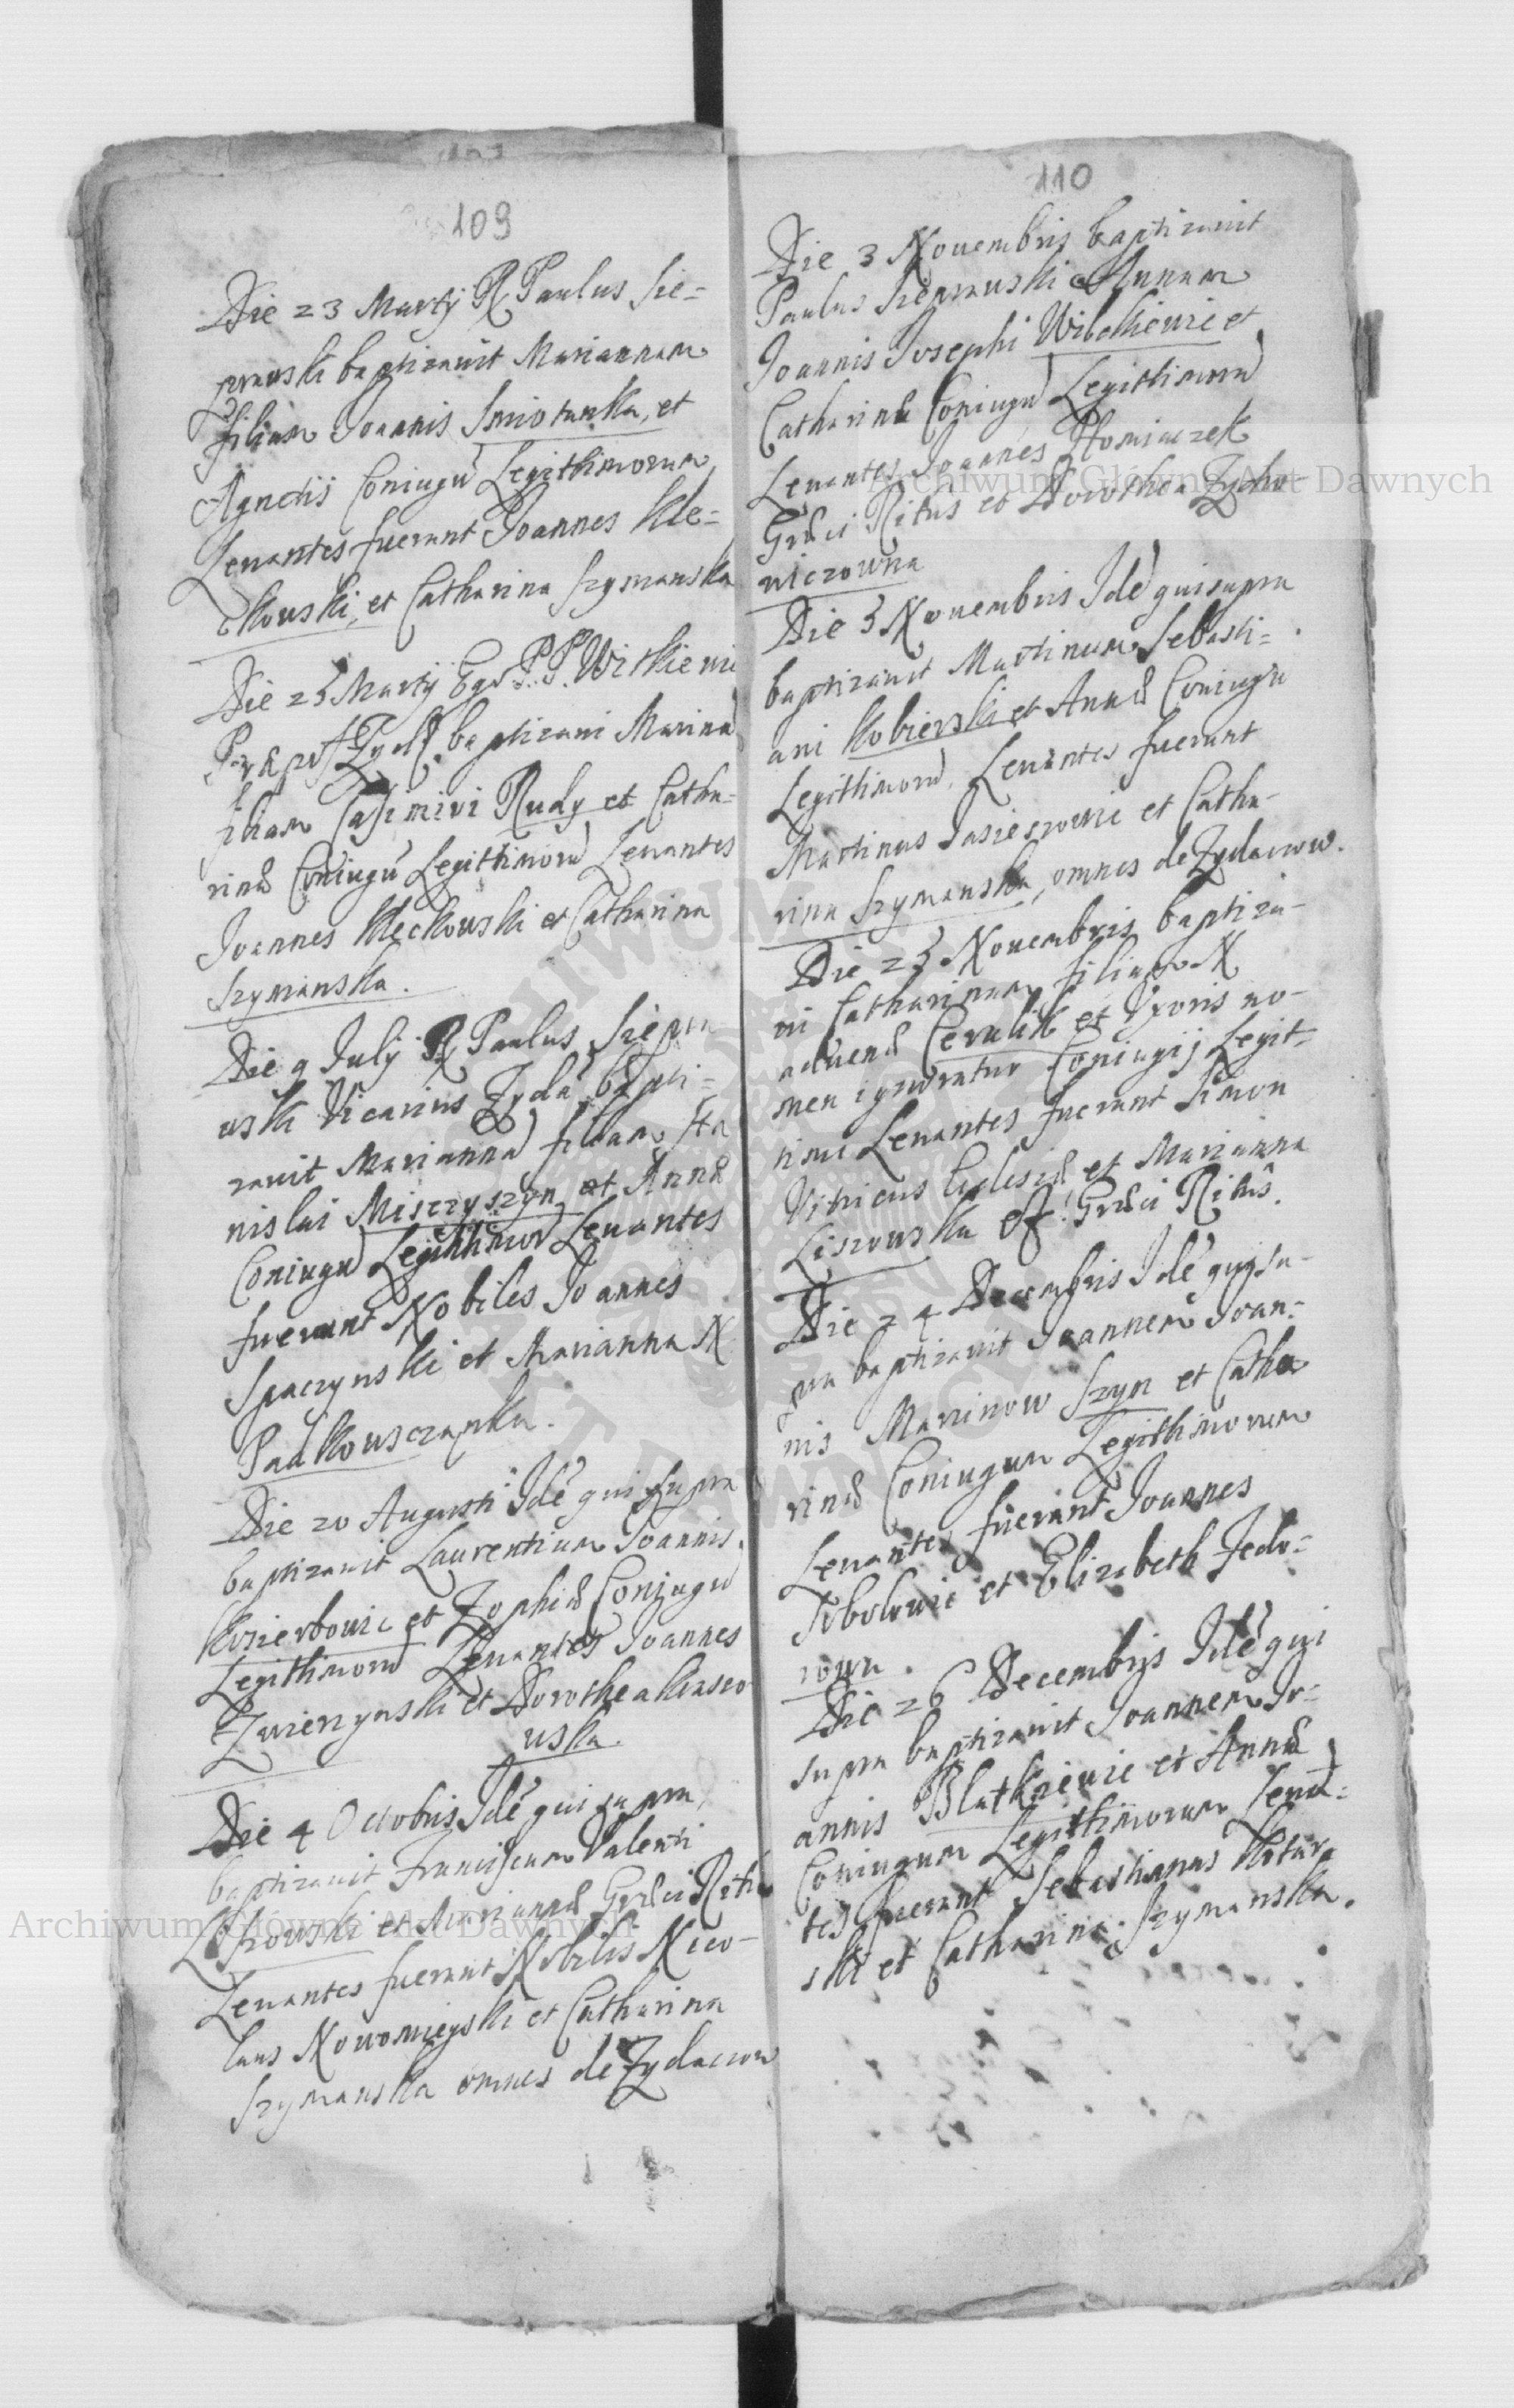 109
Die 23 Martij R Paulus Sie=
prauski baptizauit Mariannam
filiam Joannis Smiotanka, et
Agnetis Coniugū Legitthimorum
Leuantes fuerunt Joannes Kle=
ckouski, et Catharina Szymanska
Die 25 Martij Ego P. P. Witkieui
baptizaui Marinā
filiam Casimiri Rudy et Catha=
rinæ Coniugū Legitthimorū Leuantes
Joannes Kleckouski et Catharina
Szymanska.
Die 9 Julij R Paulus Siepra
uski Vicarius Zyda: bapti=
zauit Mariannā filiam Sta
nislai Misczyszyn et Annæ
Coniugū Legitthimor Leuantes
fuerunt Nobiles Joannes
Spaczynski et Marianna N
Paulkousczanka.
Die 20 Augusti Idē qui supra
baptizauit Laurentium Joannis
Kozierbouic et Zophiæ Coniugū
Legitthimorū Leuantes Joannes
Zwierzynski et Dorothea Kraseo
uska.
Die 4 Octobris Idē qui supra,
baptizauit Franciscum Valenti
et Mariannæ Græci Ritus
Leuantes fuerunt Nobilis Nico-
laus Nowomieyski et Catharina
Szymanska omnes de Zydaczow
110
Die 3 Nouembris baptizauit
Paulus Sieprauski Annam
Joannis Josephi Wibekieuic et
Catharinæ Coniugū Legitthimorū
Leuantes Joannes Hominczek
Græci Ritus et Dorothea Zycho-
uiczowna
Die 3 Nouembris Idē qui supra
baptizauit Martinum Sebasti=
ani Kobierski et Annæ Coniugū
Legitthimorū, Leuantes fuerunt
Martinus Jasieszouic et Catha-
rina Szymanska, omnes de Zydaczow.
Die 23 Nouembris baptiza-
ui Catharinam filiam N
aduenæ Ceralik et Vxoris no-
men ignoratur Coniugij Legit=
timi Leuantes fuerunt Simon
Vitricus Eclesiæ et Marianna
Liszouska Græci Ritûs.
Die 24 Decembris Idē qui su-
pra baptizauit Joannem Joan=
nis Marinow Szyn et Catha
rinæ Coniugum Legitthimorum
Leuantes fuerunt Joannes
Sobolouic et Elizabeth Fedo=
rown.
Die 26 Decembris Idē qui
supra baptizauit Joannem Jo=
annis Blatkieuic et Annæ
Coniugum Legitthimorum Leuā=
tes fuerunt Sebastianus Kotar
ski et Catharina Szymanska.
Archiwum Główne Akt Dawnych
Archiwum Główne Akt Dawnych